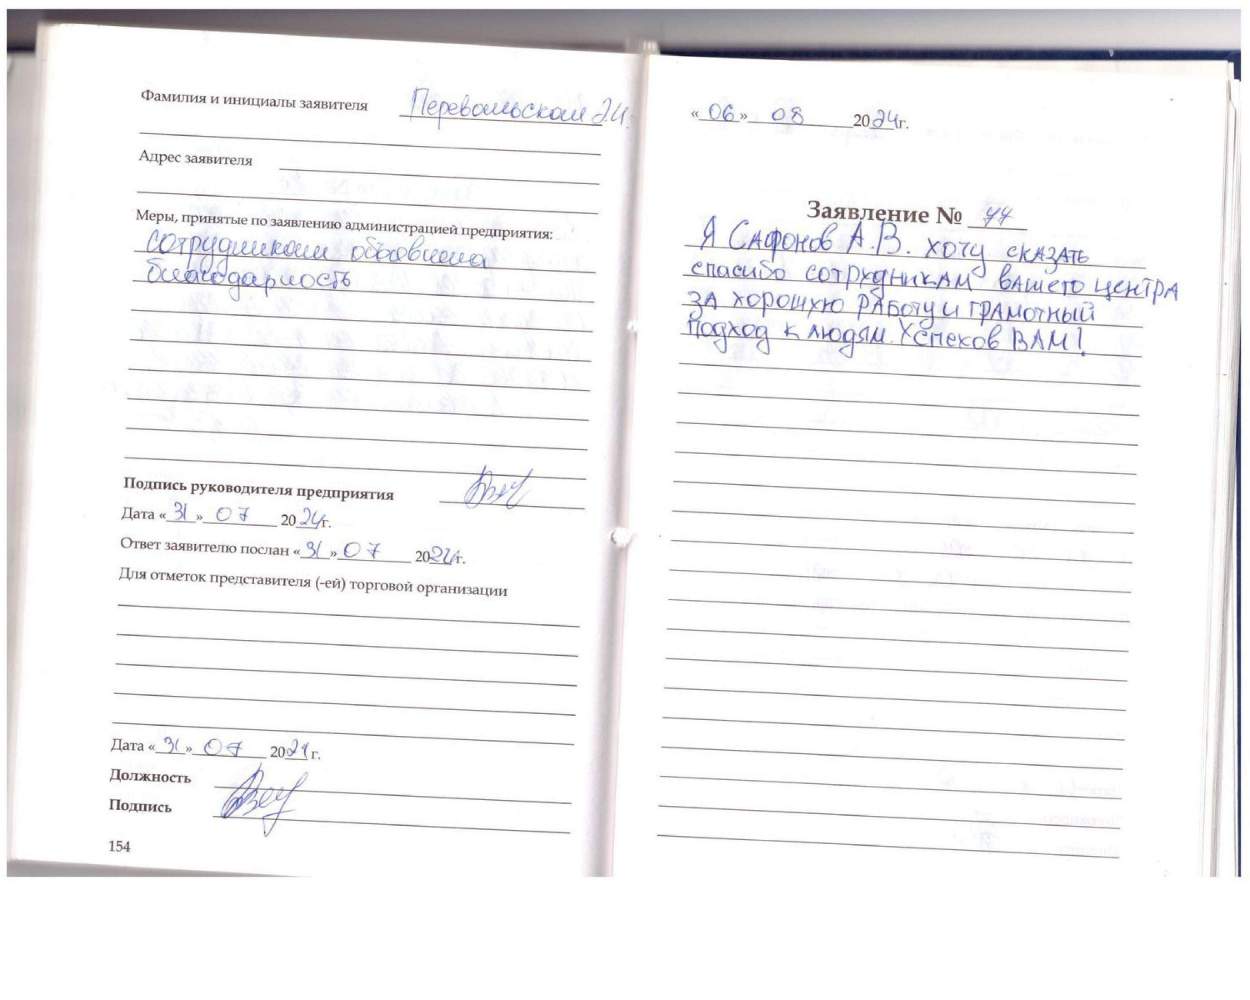 Фамилия и инициалы заявителя
Адрес заявителя
Меры, принятые по заявлению администрацией предприятия:
сотрудникам объявлена
благодарность
Подпись руководителя предприятия
Дата «31» 07 2024г.
Ответ заявителю послан «31» 07 2024г.
Для отметок представителя (-ей) торговой организации
Дата «31» 07 2024 г.
Должность
Подпись
154
«06» 08 2024г.
Заявление № 44
Я САФОНОВ А.В. ХОЧУ СКАЗАТЬ
СПАСИБО СОТРУДНИКАМ ВАШЕГО ЦЕНТРА
ЗА ХОРОШУЮ РАБОТУ И ГРАМОТНЫЙ
ПОДХОД К ЛЮДЯМ. УСПЕХОВ ВАМ!